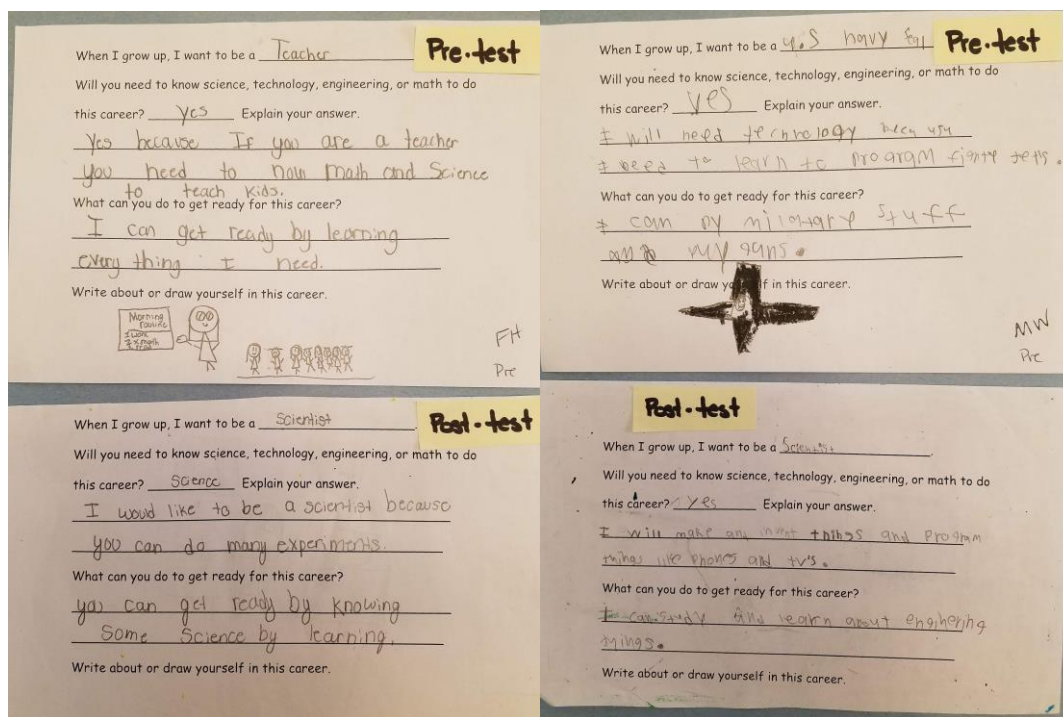 When I grow up, I want to be a Teacher
Pre-test
Will you need to know science, technology, engineering, or math to do
this career? yes Explain your answer.
Yes because If you are a teacher
you need to now math and Science
to teach kids.
What can you do to get ready for this career?
I can get ready by learning
every thing I need.
Write about or draw yourself in this career.
Morning
FH
Pre
When I grow up, I want to be a U.S navy
Pre-test
Will you need to know science, technology, engineering, or math to do
this career? yes Explain your answer.
I will need technology
I need to learn to program jets.
What can you do to get ready for this career?
I can stuff
my
Write about or draw in this career.
MW
Pre
When I grow up, I want to be a Scientist.
Post-test
Will you need to know science, technology, engineering, or math to do
this career? Science Explain your answer.
I woud like to be a scientist because
you can do many experiments.
What can you do to get ready for this career?
you can get ready by knowing
Some Science by learning.
Write about or draw yourself in this career.
Post-test
When I grow up, I want to be a Scientist.
Will you need to know science, technology, engineering, or math to do
this career? yes Explain your answer.
I will make things and program
things like phones and tv's.
What can you do to get ready for this career?
I can study and learn about
things.
Write about or draw yourself in this career.